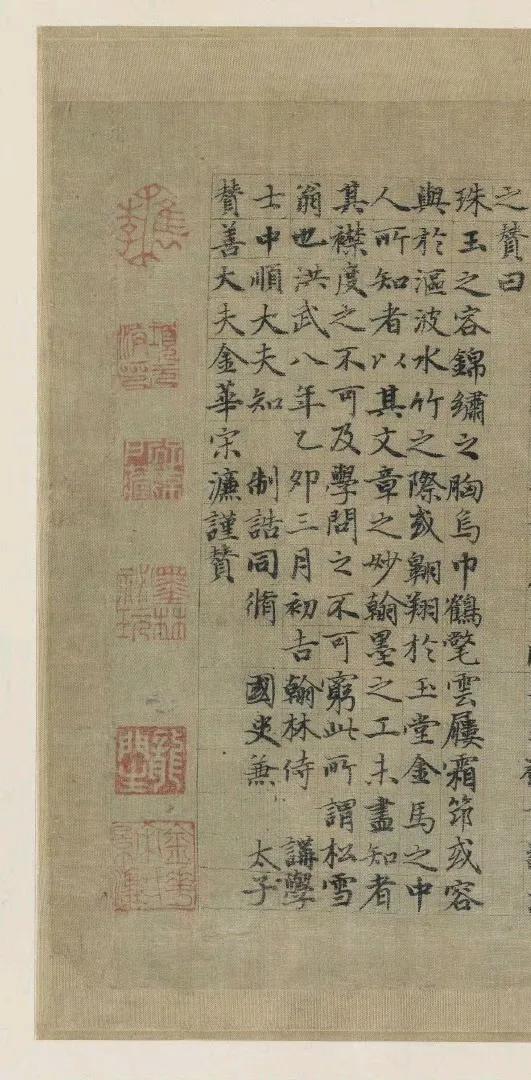 之贊曰
珠玉之容錦繡之胸烏巾鶴氅雲屨霜笻或容
與於漚波水竹之際或翺翔於玉堂金馬之中
人所知者以其文章之妙翰墨之工未盡知者
其襟度之不可及學問之不可窮此所謂松雪
翁也洪武八年乙卯三月初吉翰林侍 講學
士中順大夫知 制誥同脩 國史兼 太子
贊善大夫金華宋濂謹贊